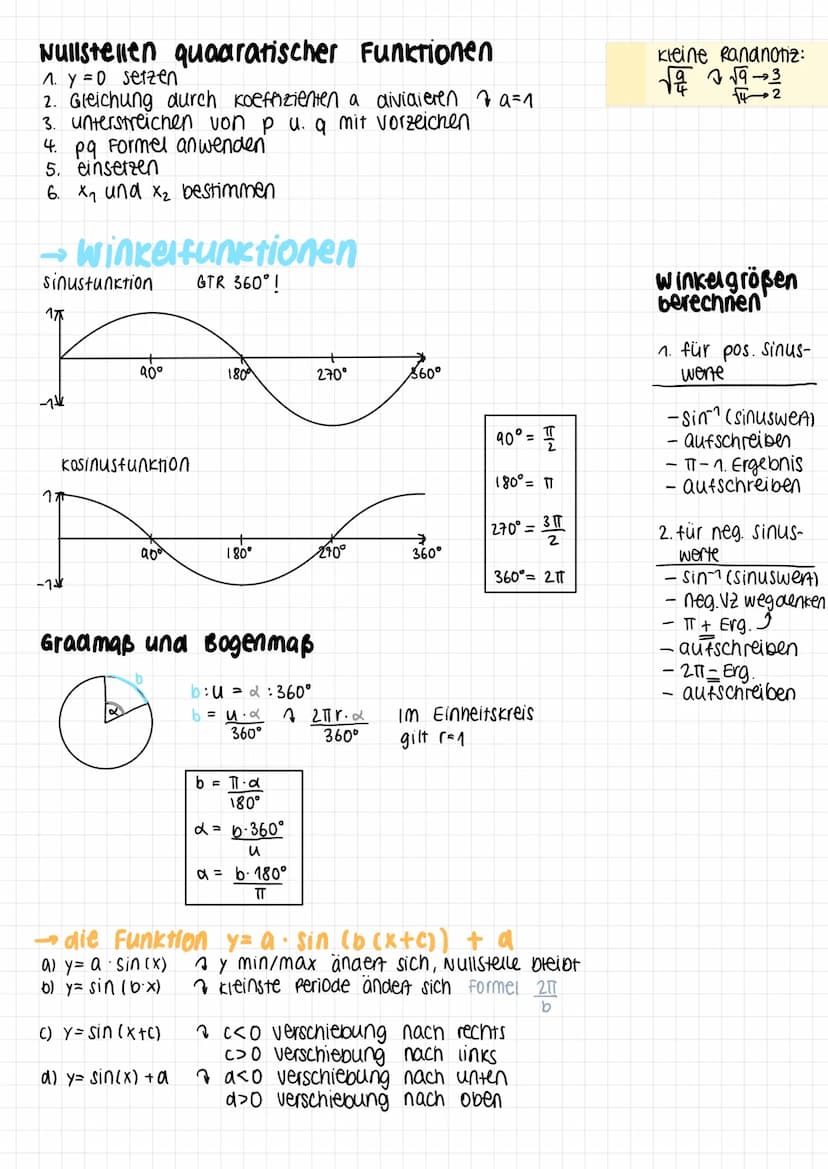 Nullstellen quadratischer Funktionen
1. y = 0 setzen
2. Gleichung durch Koeffizienten a dividieren ↴ a=1
3. unterstreichen von p u. q mit Vorzeichen
4. pq Formel anwenden
5. einsetzen
6. x₁ und x₂ bestimmen
Kleine Randnotiz:
√(9/4) ↴ √9 → 3
√4 → 2
→ Winkelfunktionen
Sinusfunktion GTR 360°!
1
90° 180° 270° 360°
-1
Kosinusfunktion
1
90° 180° 270° 360°
-1
90° = π/2
180° = π
270° = 3π/2
360° = 2π
Winkelgrößen
berechnen
1. für pos. Sinus-
werte
- sin⁻¹ (sinuswert)
- aufschreiben
- π - 1. Ergebnis
- aufschreiben
2. für neg. Sinus-
werte
- sin⁻¹ (sinuswert)
- neg. VZ wegdenken
- π + Erg.
- aufschreiben
- 2π - Erg.
- aufschreiben
Gradmaß und Bogenmaß
b
α
b : u = α : 360°
b = u · α / 360° ↴ 2πr · α / 360° Im Einheitskreis
gilt r=1
b = π · α / 180°
α = b · 360° / u
α = b · 180° / π
→ die Funktion y = a · sin (b (x+c)) + d
a) y = a · sin (x) ↴ y min/max ändert sich, Nullstelle bleibt
b) y = sin (b·x) ↴ kleinste Periode ändert sich Formel 2π/b
c) y = sin (x+c) ↴ c<0 Verschiebung nach rechts
c>0 Verschiebung nach links
d) y = sin(x) + d ↴ d<0 Verschiebung nach unten
d>0 Verschiebung nach oben